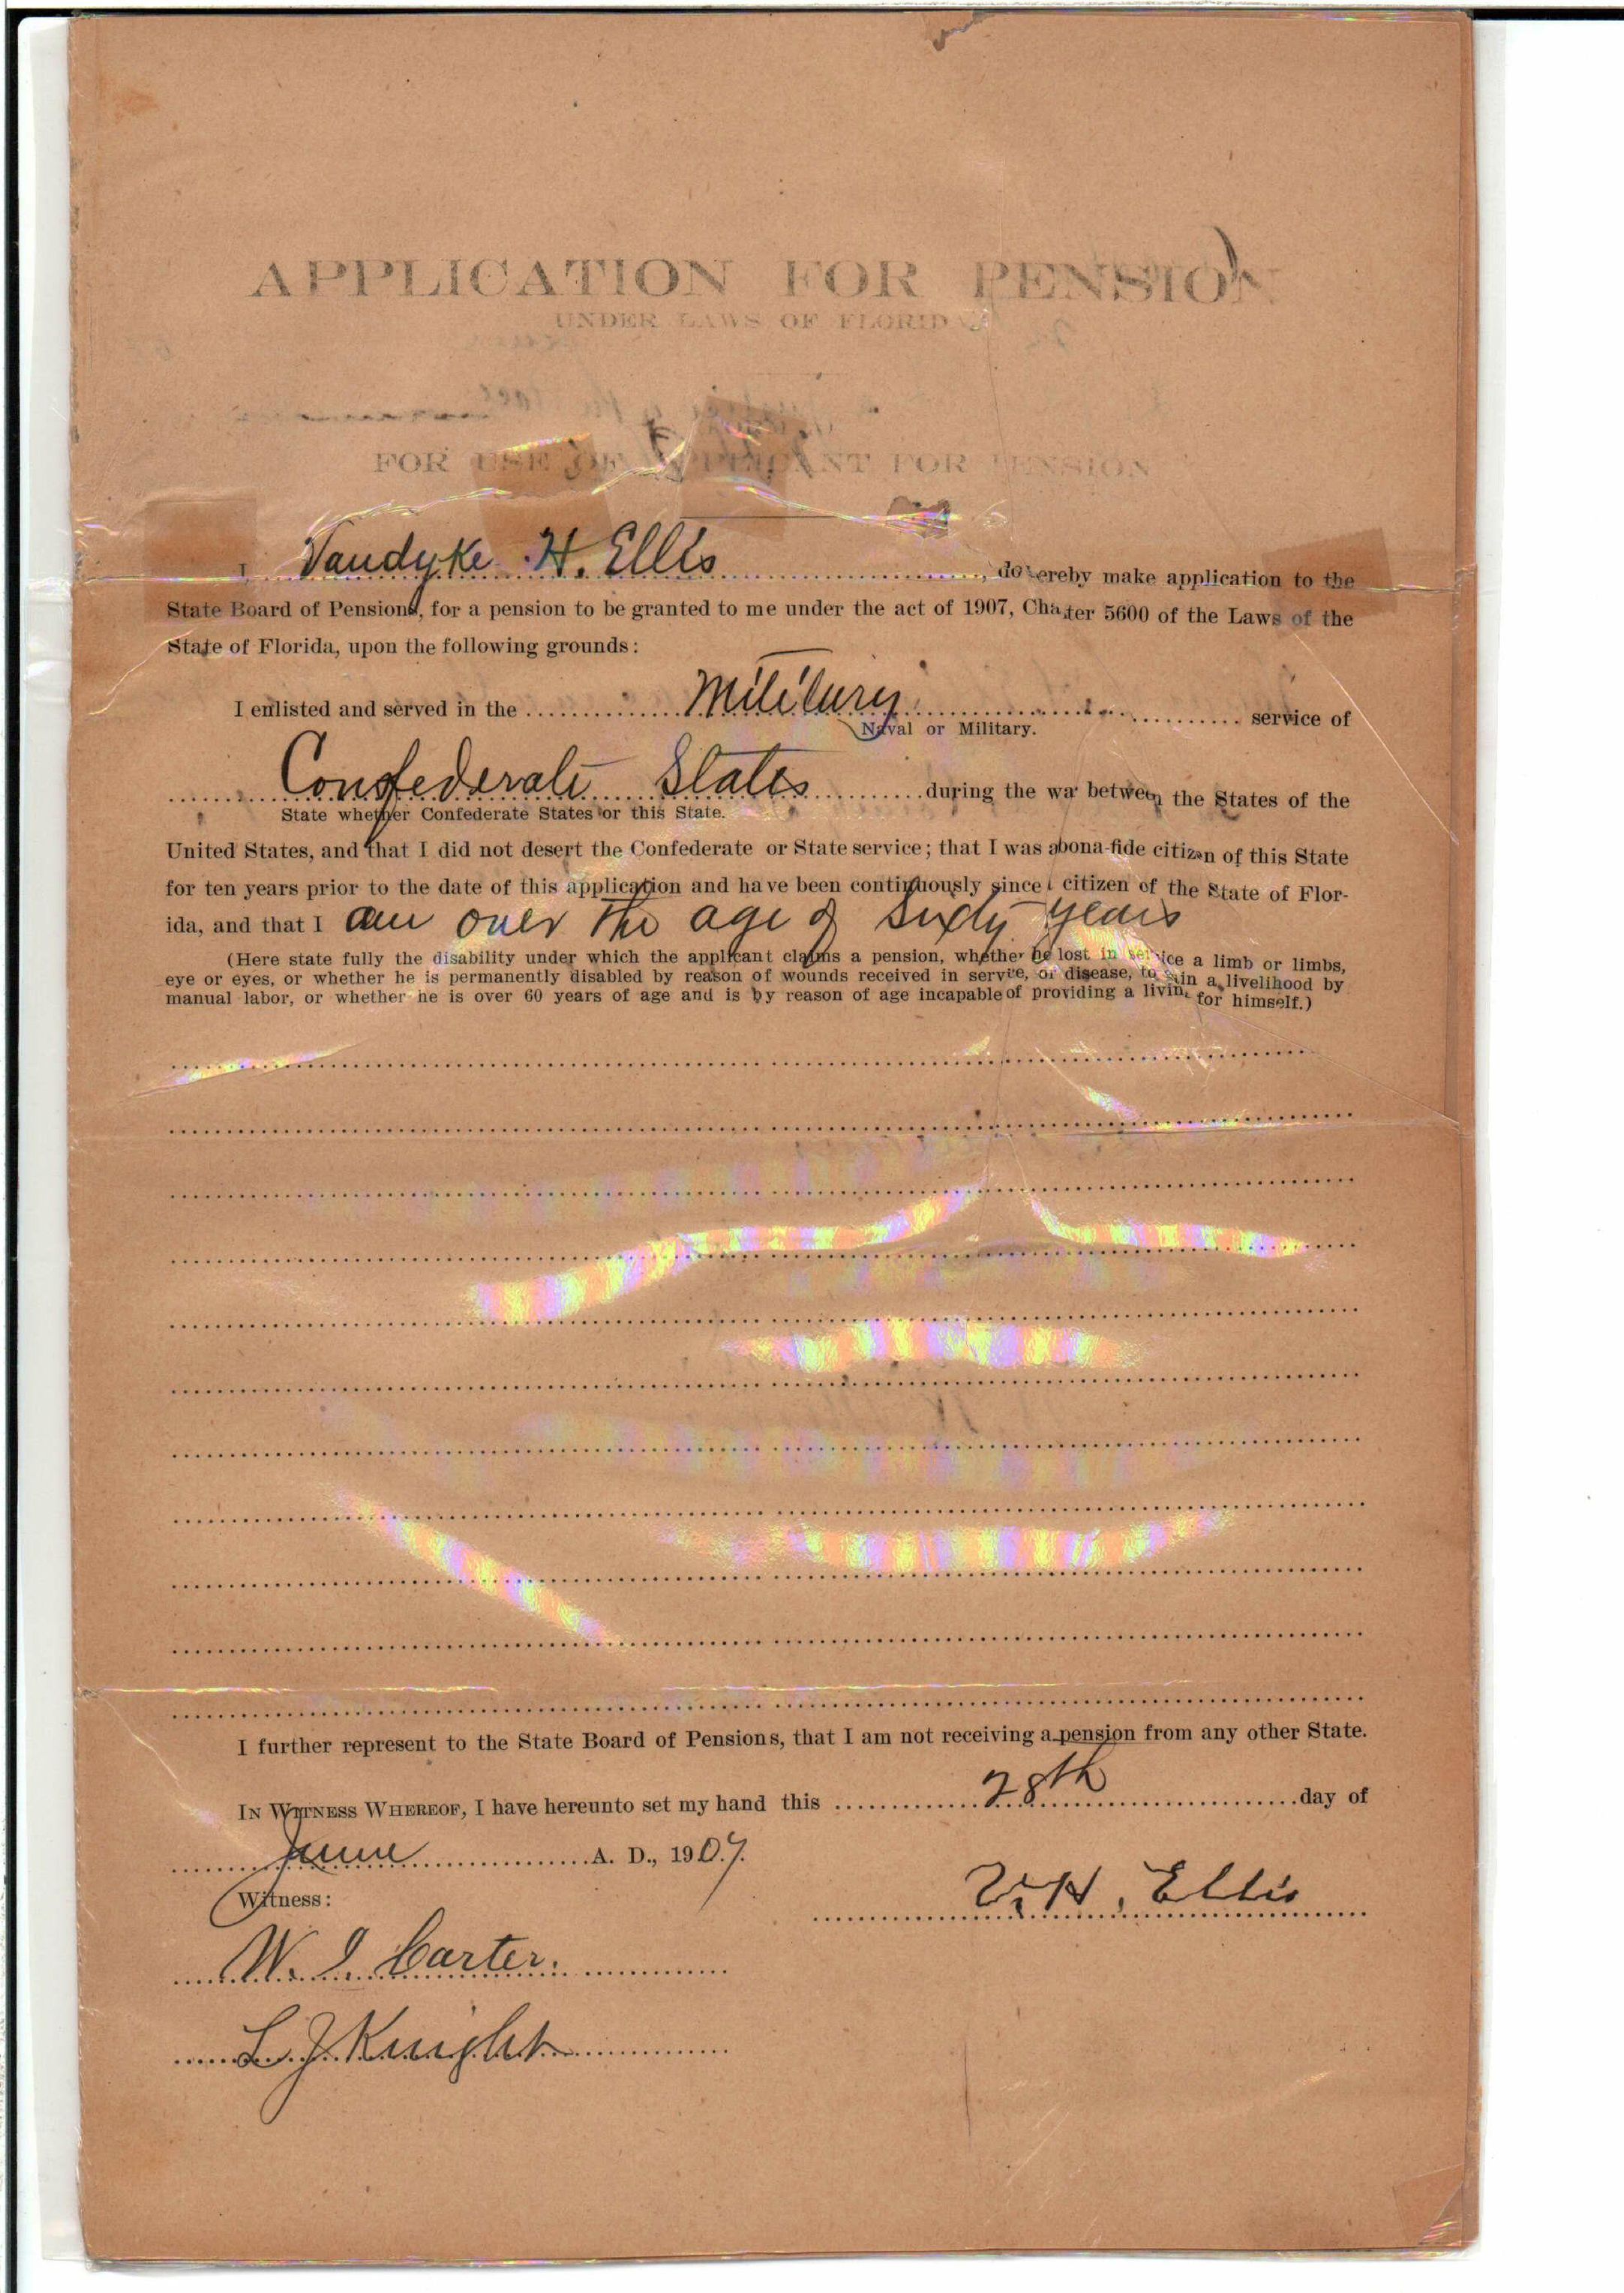 APPLICATION FOR PENSION
UNDER LAWS OF FLORIDA
FOR USE OF APPLICANT FOR PENSION
I, Vandyke H. Ellis, do hereby make application to the
State Board of Pensions, for a pension to be granted to me under the act of 1907, Chapter 5600 of the Laws of the
State of Florida, upon the following grounds:
I enlisted and served in the Military service of
Naval or Military.
Confederate States during the war between the States of the
State whether Confederate States or this State.
United States, and that I did not desert the Confederate or State service; that I was a bona-fide citizen of this State
for ten years prior to the date of this application and have been continuously since a citizen of the State of Flor-
ida, and that I am over the age of sixty years
(Here state fully the disability under which the applicant claims a pension, whether he lost in service a limb or limbs,
eye or eyes, or whether he is permanently disabled by reason of wounds received in service, or disease, to gain a livelihood by
manual labor, or whether he is over 60 years of age and is by reason of age incapable of providing a living for himself.)
I further represent to the State Board of Pensions, that I am not receiving a pension from any other State.
IN WITNESS WHEREOF, I have hereunto set my hand this 28th day of
June A. D., 1907.
Witness:
V. H. Ellis
W. J. Carter.
L J Knight